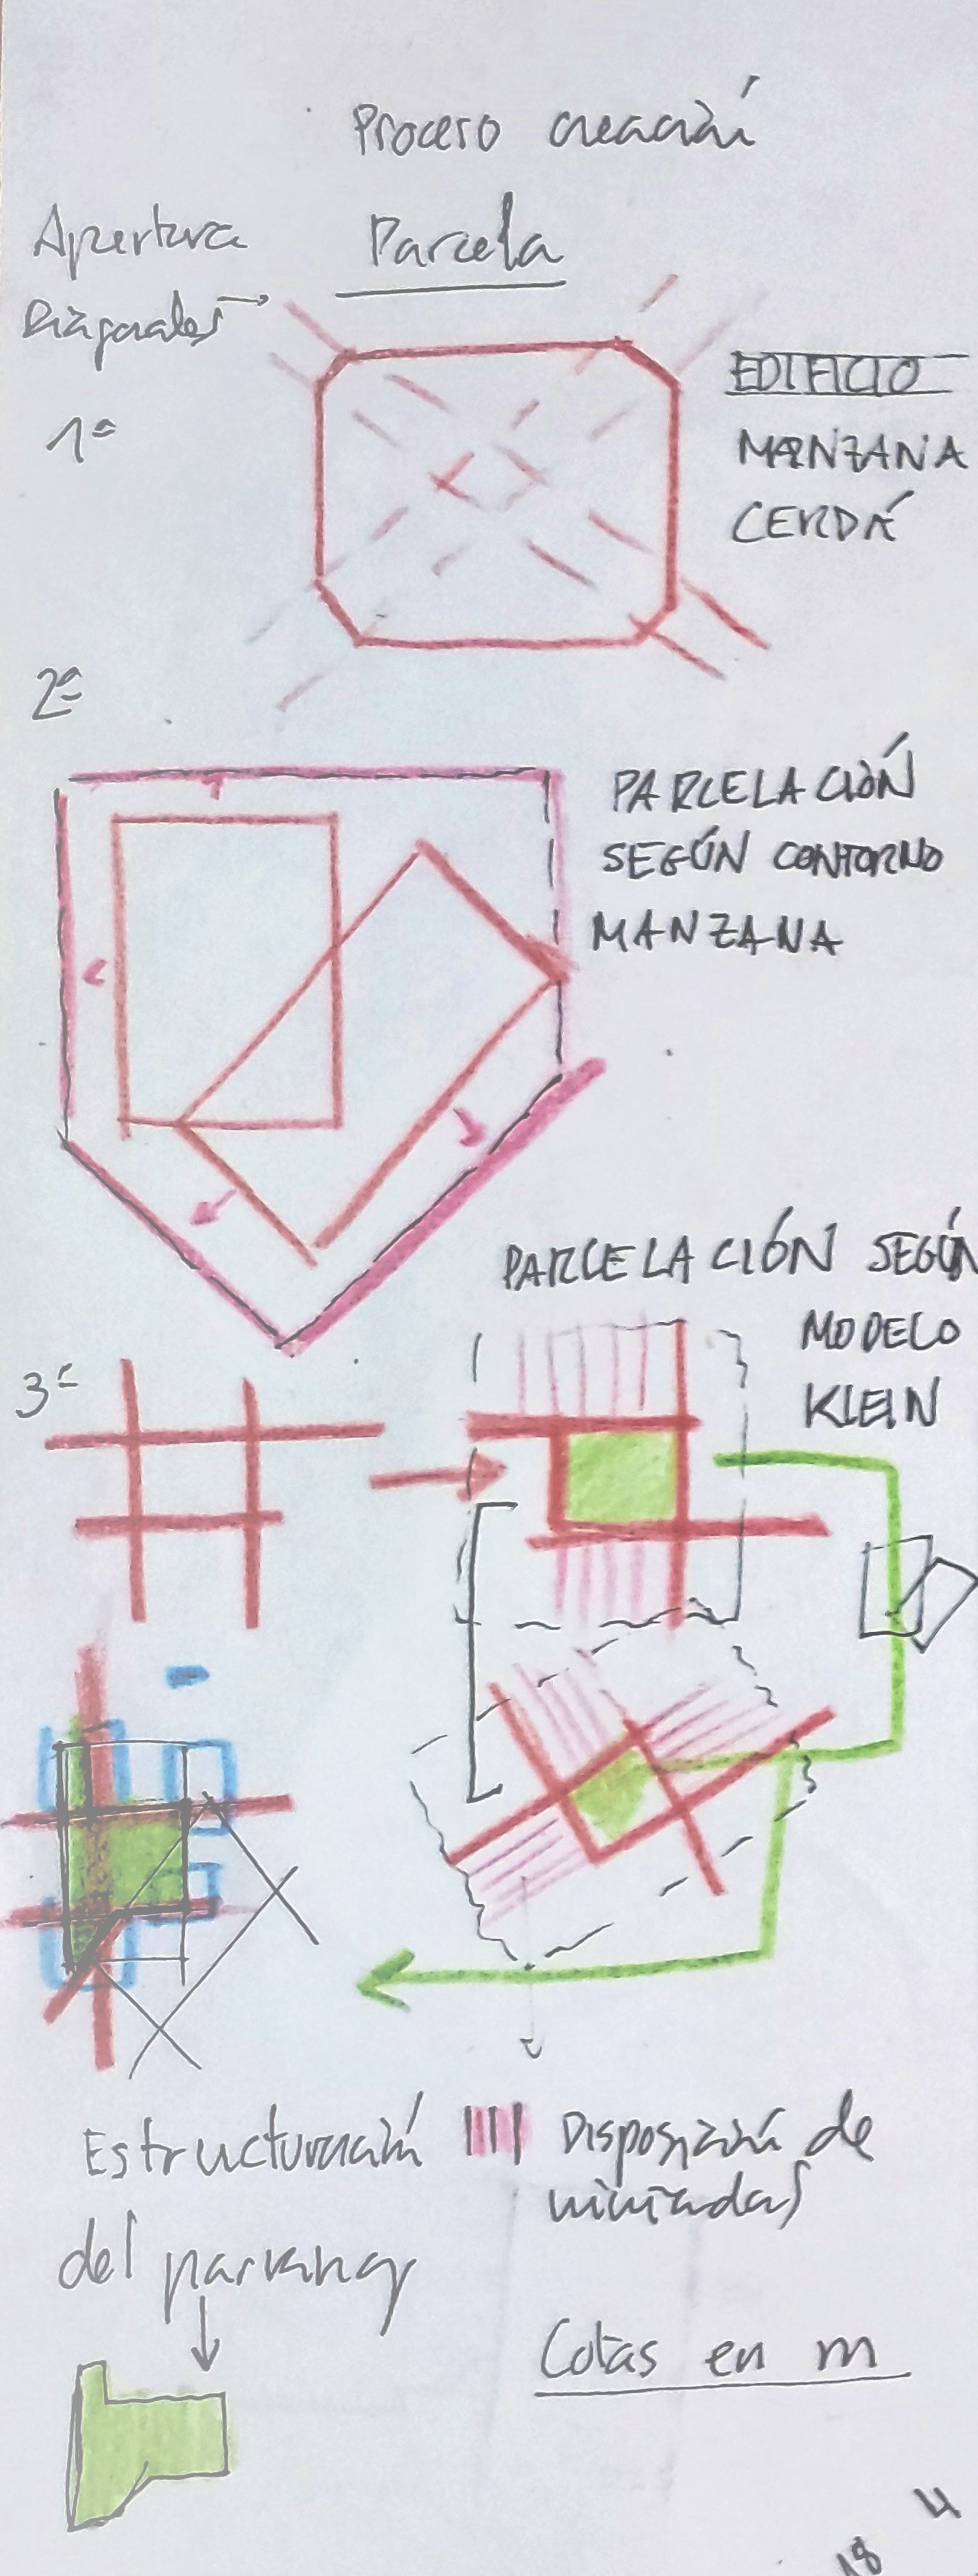 Proceso creación
Parcela
Apertura
Diagonales
1ª
EDIFICIO
MANZANA
CERDÁ
2ª
PARCELACIÓN
SEGÚN CONTORNO
MANZANA
PARCELACIÓN SEGÚN
MODELO
KLEIN
3ª
Estructuración
del parking
Disposición de
viviendas
Cotas en m
18 4